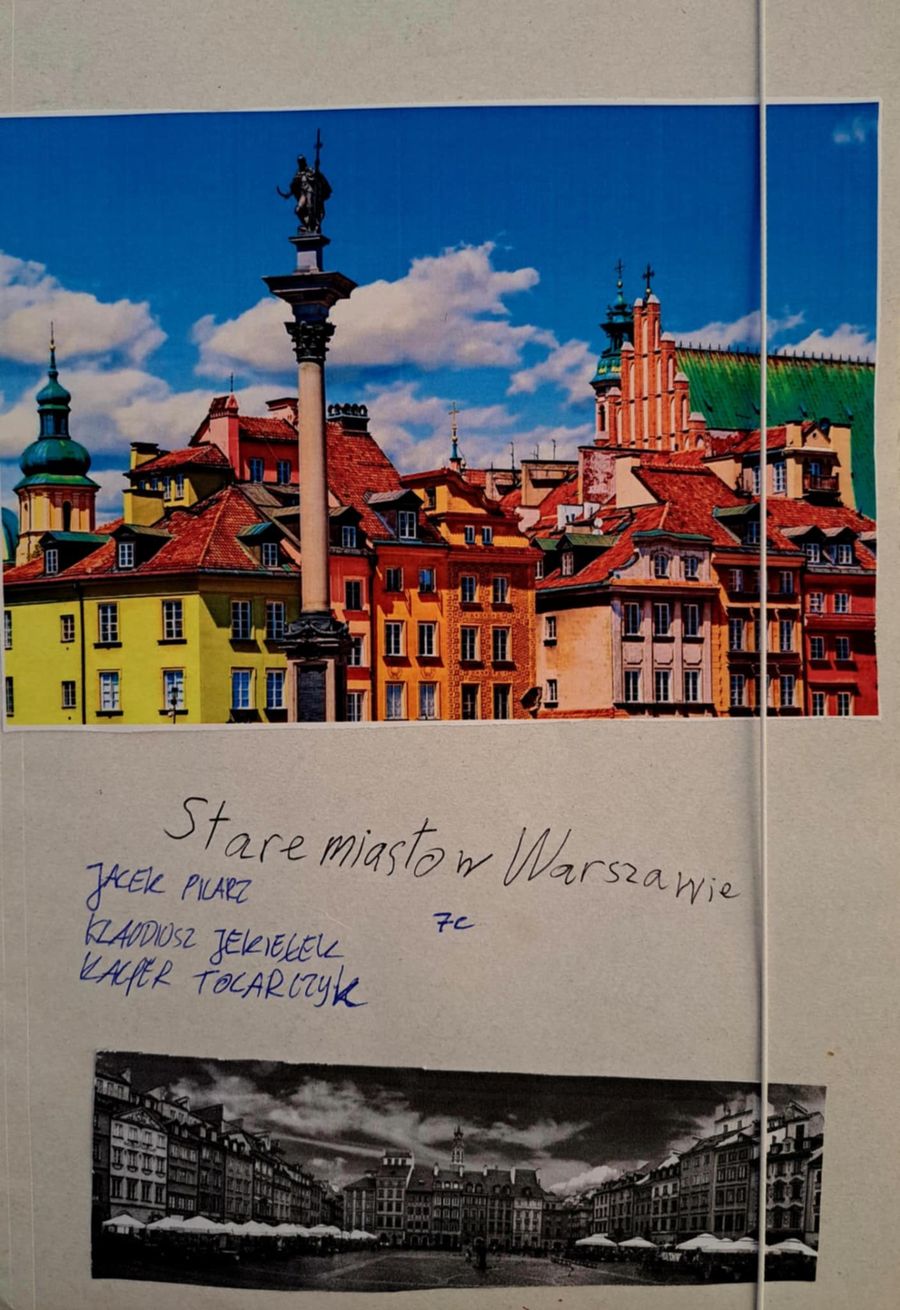 Stare miasto w Warszawie
JACEK PILARZ
7c
KLAUDIUSZ JEKIEŁEK
KACPER TOCARCZYK